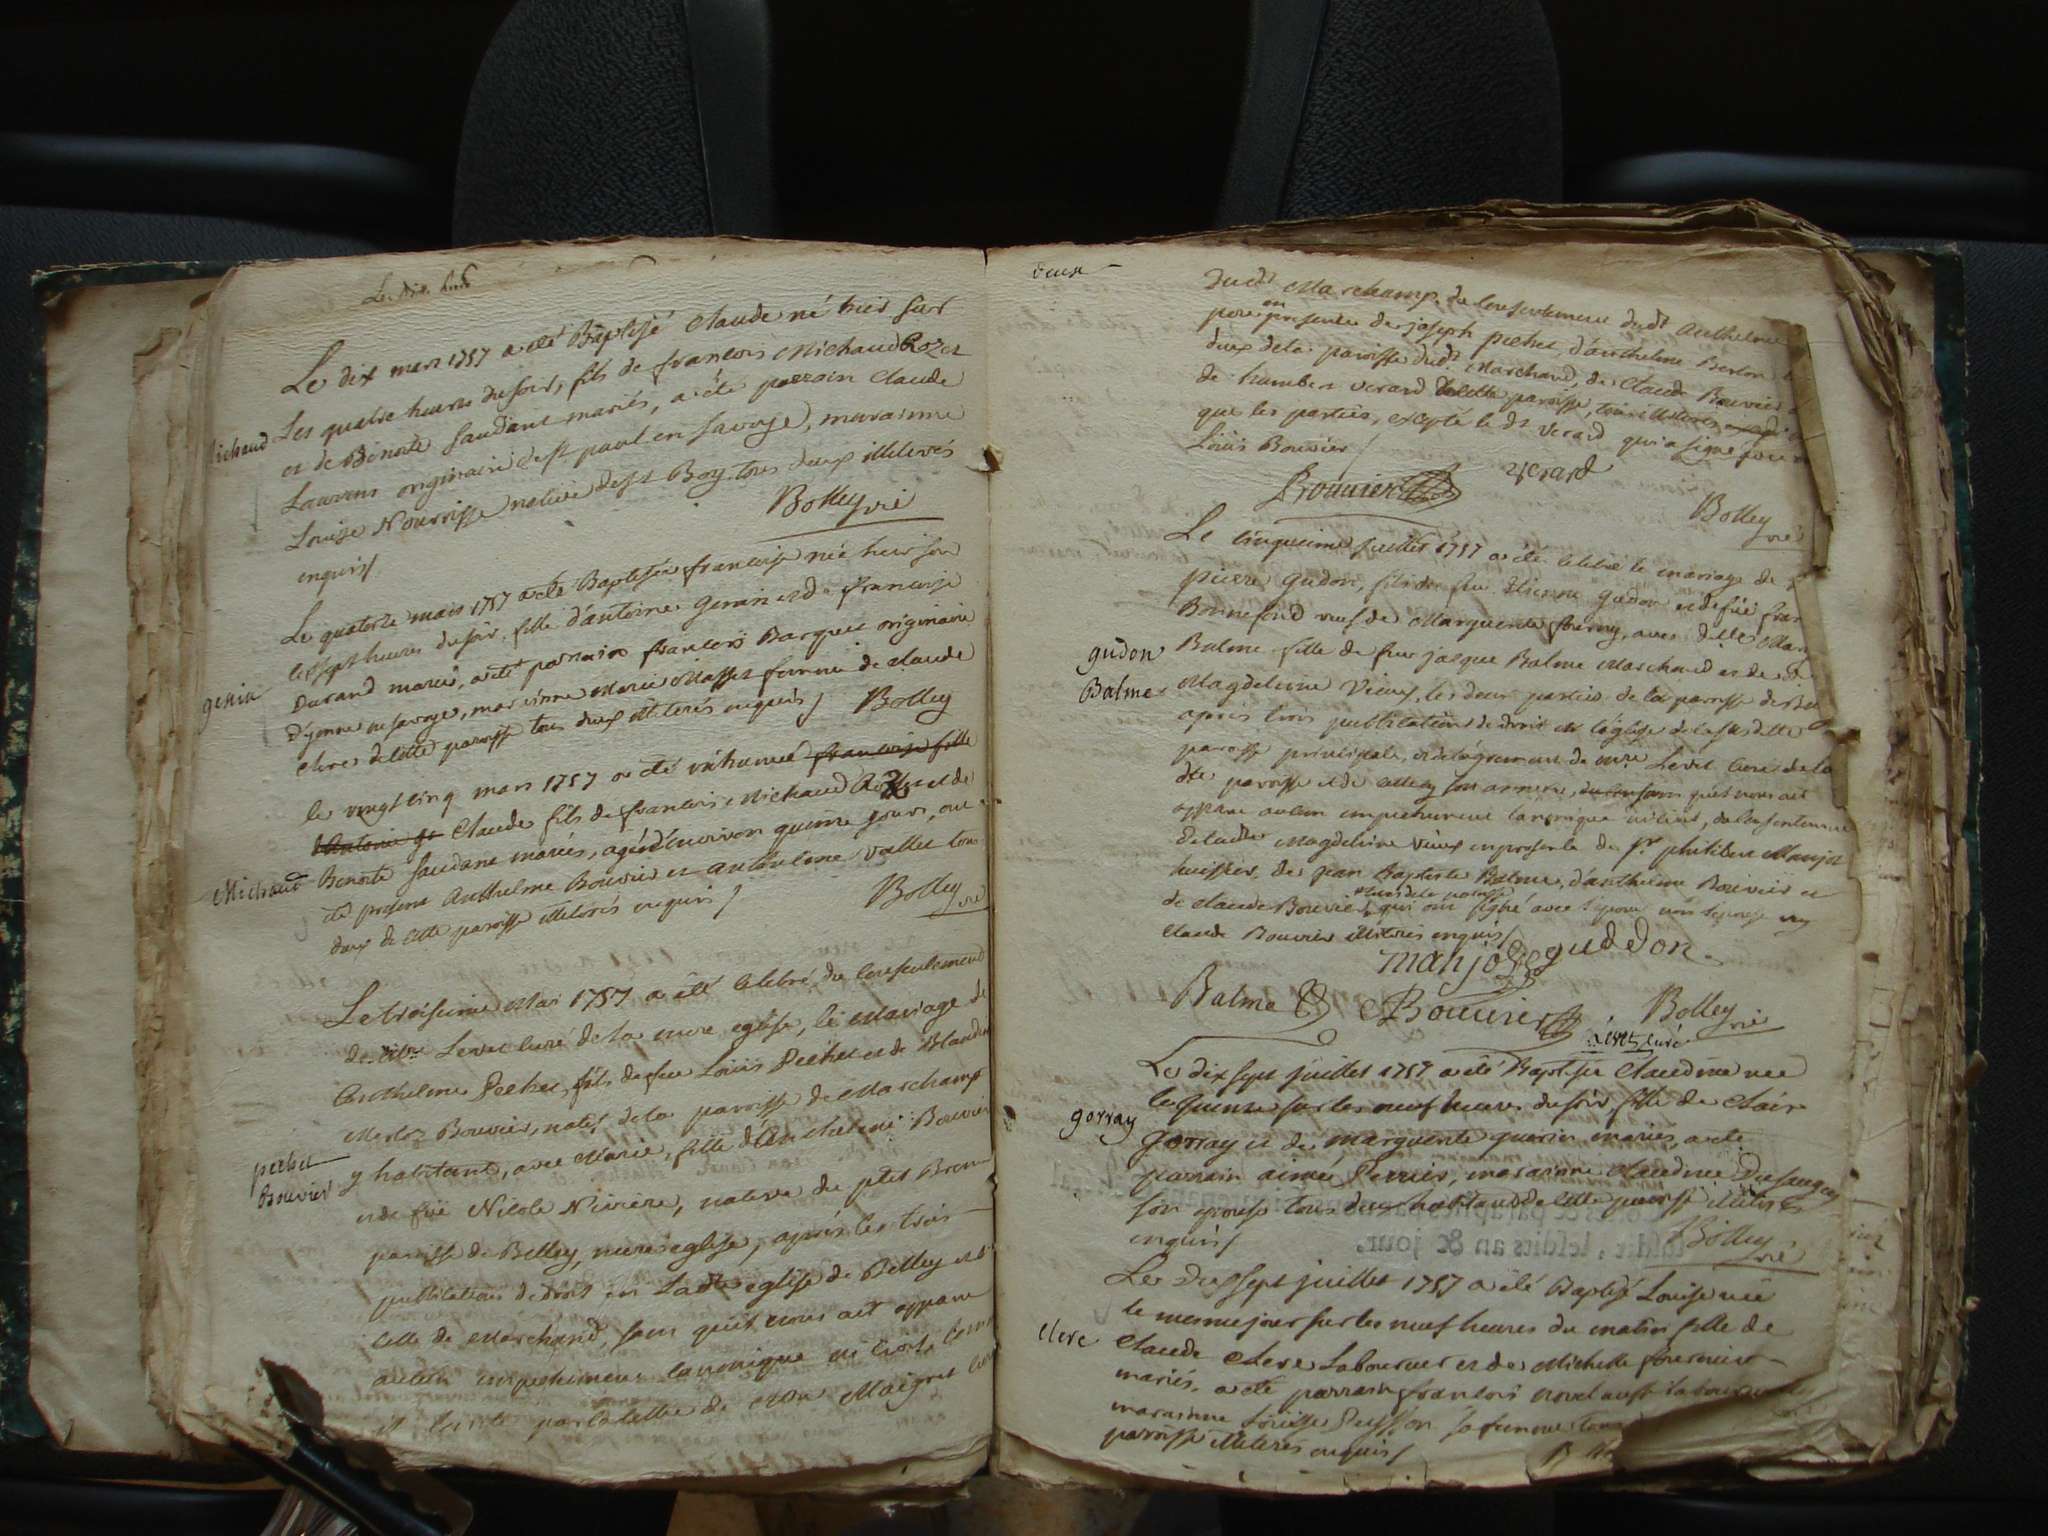 Le dix mars 1757 a eté Baptisé Claude né hier sur
Les quatre heures du soir, fils de francois Michaud Rozet
Michaud
et de Benoite Saudant mariés, a eté parrain Claude
Laurens originaire de st paul en Savoye, maraine
Louise Nourrisse native de st Boy tous deux illiterés
enquis
Bolley vic
Le quatorze mars 1757 a eté Baptisée francoise née hier sur
les sept heures du soir fille d'antoine Genin et de francoise
genin
Durand mariés, a eté parrain francois Barquet originaire
d'yenne en savoye, maraine Marie Masset femme de claude
Clerc de cette paroisse tous deux illiterés enquis
Bolley
le vingt cinq mars 1757 a eté inhumé francoise fille
d'Antoine ge Claude fils de francois Michaud Rozet et de
Michaud
Benoite Saudant mariés, agé d'environ quinze jours, ont
eté presens Anthelme Bouvier et anthelme vallet tous
deux de cette paroisse illiterés enquis
Bolley vic
Le troisieme Mai 1757 a été celebré, du consentement
de mre Levet curé de la mere eglise, le Mariage de
Anthelme Pechet, fils de feu Louis Pechet et de Claudine
Merloz Bouvier, natif de la paroisse de Marchamp
pechet
Bouvier
y habitant, avec Marie, fille d'Anthelme Bouvier
et de füe Nicole Niviere, native du petit Brens
paroisse de Belley, mere eglise, après les trois
publications de droit en Ladte eglise de Belley et
celle de Marchand, sans qu'il nous ait apparu
aucun empechement canonique ni civil, comme
il conste par la lettre de Mre Maigret curé
deux
dudt Marchamp, du consentement dudt Anthelme
pere en presence de joseph pechet, d'anthelme Berlon
deux de la paroisse dudt Marchand, de Claude Bouvier
de humbert verard de cette paroisse, tous illiterés
que les parties, excepté le dt verard qui a signé avec
Louis Bouvier
Bouvier
verard
Bolley vic
Le cinquieme juillet 1757 a été celebré le mariage de
pierre Gudon, fils de feu Etienne gudon et de füe
Bonnefond veuf de Marguerite, avec dlle
gudon
Balme
Balme fille de feu jacque Balme Marchand et de
Magdeleine Vieux, les deux parties de la paroisse de
après trois publications de droit en l'église de la susdte
paroisse principale, et de l'agrement de mre Levet curé de la
dte paroisse et de cette son annexe, sans qu'il nous ait
apparu aucun empechement canonique ni civil, du consentement
de ladte Magdeleine vieux en presence de sr philibert Manjot
huissier, de jean Baptiste Balme, d'anthelme Bouvier et
de Claude Bouvier qui ont signé avec l'epoux non l'epouse ny
Claude Bouvier illiterés enquis
manjot
gueddon
Balme
Bouvier
Bolley vic
Levet curé
Le dix sept juillet 1757 a été Baptisée Claudine née
le quinze sur les neuf heures du soir, fille de Clair
gorray
gorray et de marguerite guerin mariés, a eté
parrain aimé Perrier, maraine Claudine Dusaugey
son epouse tous deux habitans de cette paroisse illiterés
enquis
Bolley vic
Le dix sept juillet 1757 a été Baptisé Louise née
le mesme jour sur les neuf heures du matin fille de
Clerc
Claude Clerc Laboureur et de Michelle fournier
mariés, a eté parrain francois novel aussi laboureur
maraine Louise Buisson sa femme
paroisse illiterés enquis